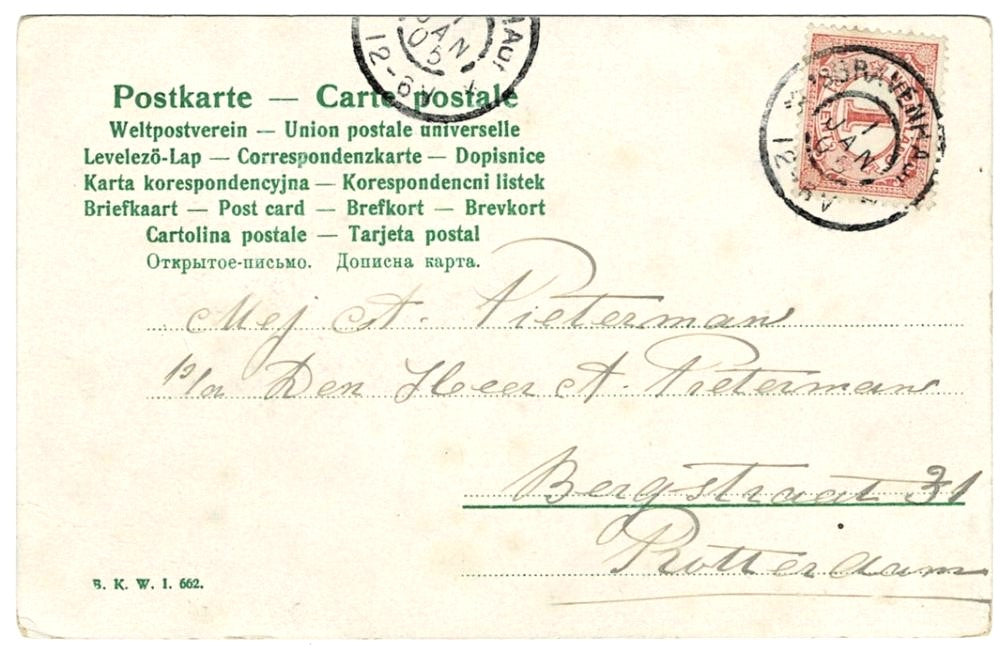 Postkarte — Carte postale
Weltpostverein — Union postale universelle
Levelezö-Lap — Correspondenzkarte — Dopisnice
Karta korespondencyjna — Korespondencni listek
Briefkaart — Post card — Brefkort — Brevkort
Cartolina postale — Tarjeta postal
Открытое-письмо. Дописна карта.
JAN
05
12-6V
1
JAN
05
12-6V
Mej A. Pieterman
p/a Den Heer A. Pieterman
Bergstraat 31
Rotterdam
B. K. W. I. 662.